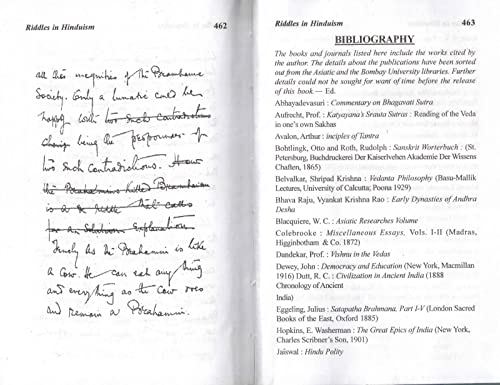 Riddles in Hinduism 462
all this iniquities of the Brahmanic
Society. Only a lunatic could be
happy with his such contradictions
being the of
his such Contradictions. How
the Brahmins killed Brahmaism
is a riddle that calls
for an Explanation
Truly as the Brahamin is like
a cow. He can eat any thing
and everything as the cow does
and remain a Brahamin.
Riddles in Hinduism 463
BIBLIOGRAPHY
The books and journals listed here include the works cited by
the author. The details about the publications have been sorted
out from the Asiatic and the Bombay University libraries. Further
details could not be sought for want of time before the release
of this book — Ed.
Abhayadevasuri : Commentary on Bhagavati Sutra
Aufrecht, Prof. : Katyayana's Srauta Sutras : Reading of the Veda
in one's own Sakhas
Avalon, Arthur : inciples of Tantra
Bohtlingk, Otto and Roth, Rudolph : Sanskrit Worterbuch : (St.
Petersburg, Buchdruckerei Der Kaiserlehen Akademie Der Wissens
Chaften, 1865)
Belvalkar, Shripad Krishna : Vedanta Philosophy (Basu-Mallik
Lectures, University of Calcutta; Poona 1929)
Bhava Raju, Vyankat Krishna Rao : Early Dynasties of Andhra
Desha
Blacquiere, W. C. : Asiatic Researches Volume
Colebrooke : Miscellaneous Essays, Vols. I-II (Madras,
Higginbotham & Co. 1872)
Dandekar, Prof. : Vishnu in the Vedas
Dewey, John : Democracy and Education (New York, Macmillan
1916) Dutt, R. C. : Civilization in Ancient India (1888
Chronology of Ancient
India)
Eggeling, Julius : Satapatha Brahmana, Part I-V (London Sacred
Books of the East, Oxford 1885)
Hopkins, E. Washerman : The Great Epics of India (New York,
Charles Scribner's Son, 1901)
Jaiswal : Hindu Polity